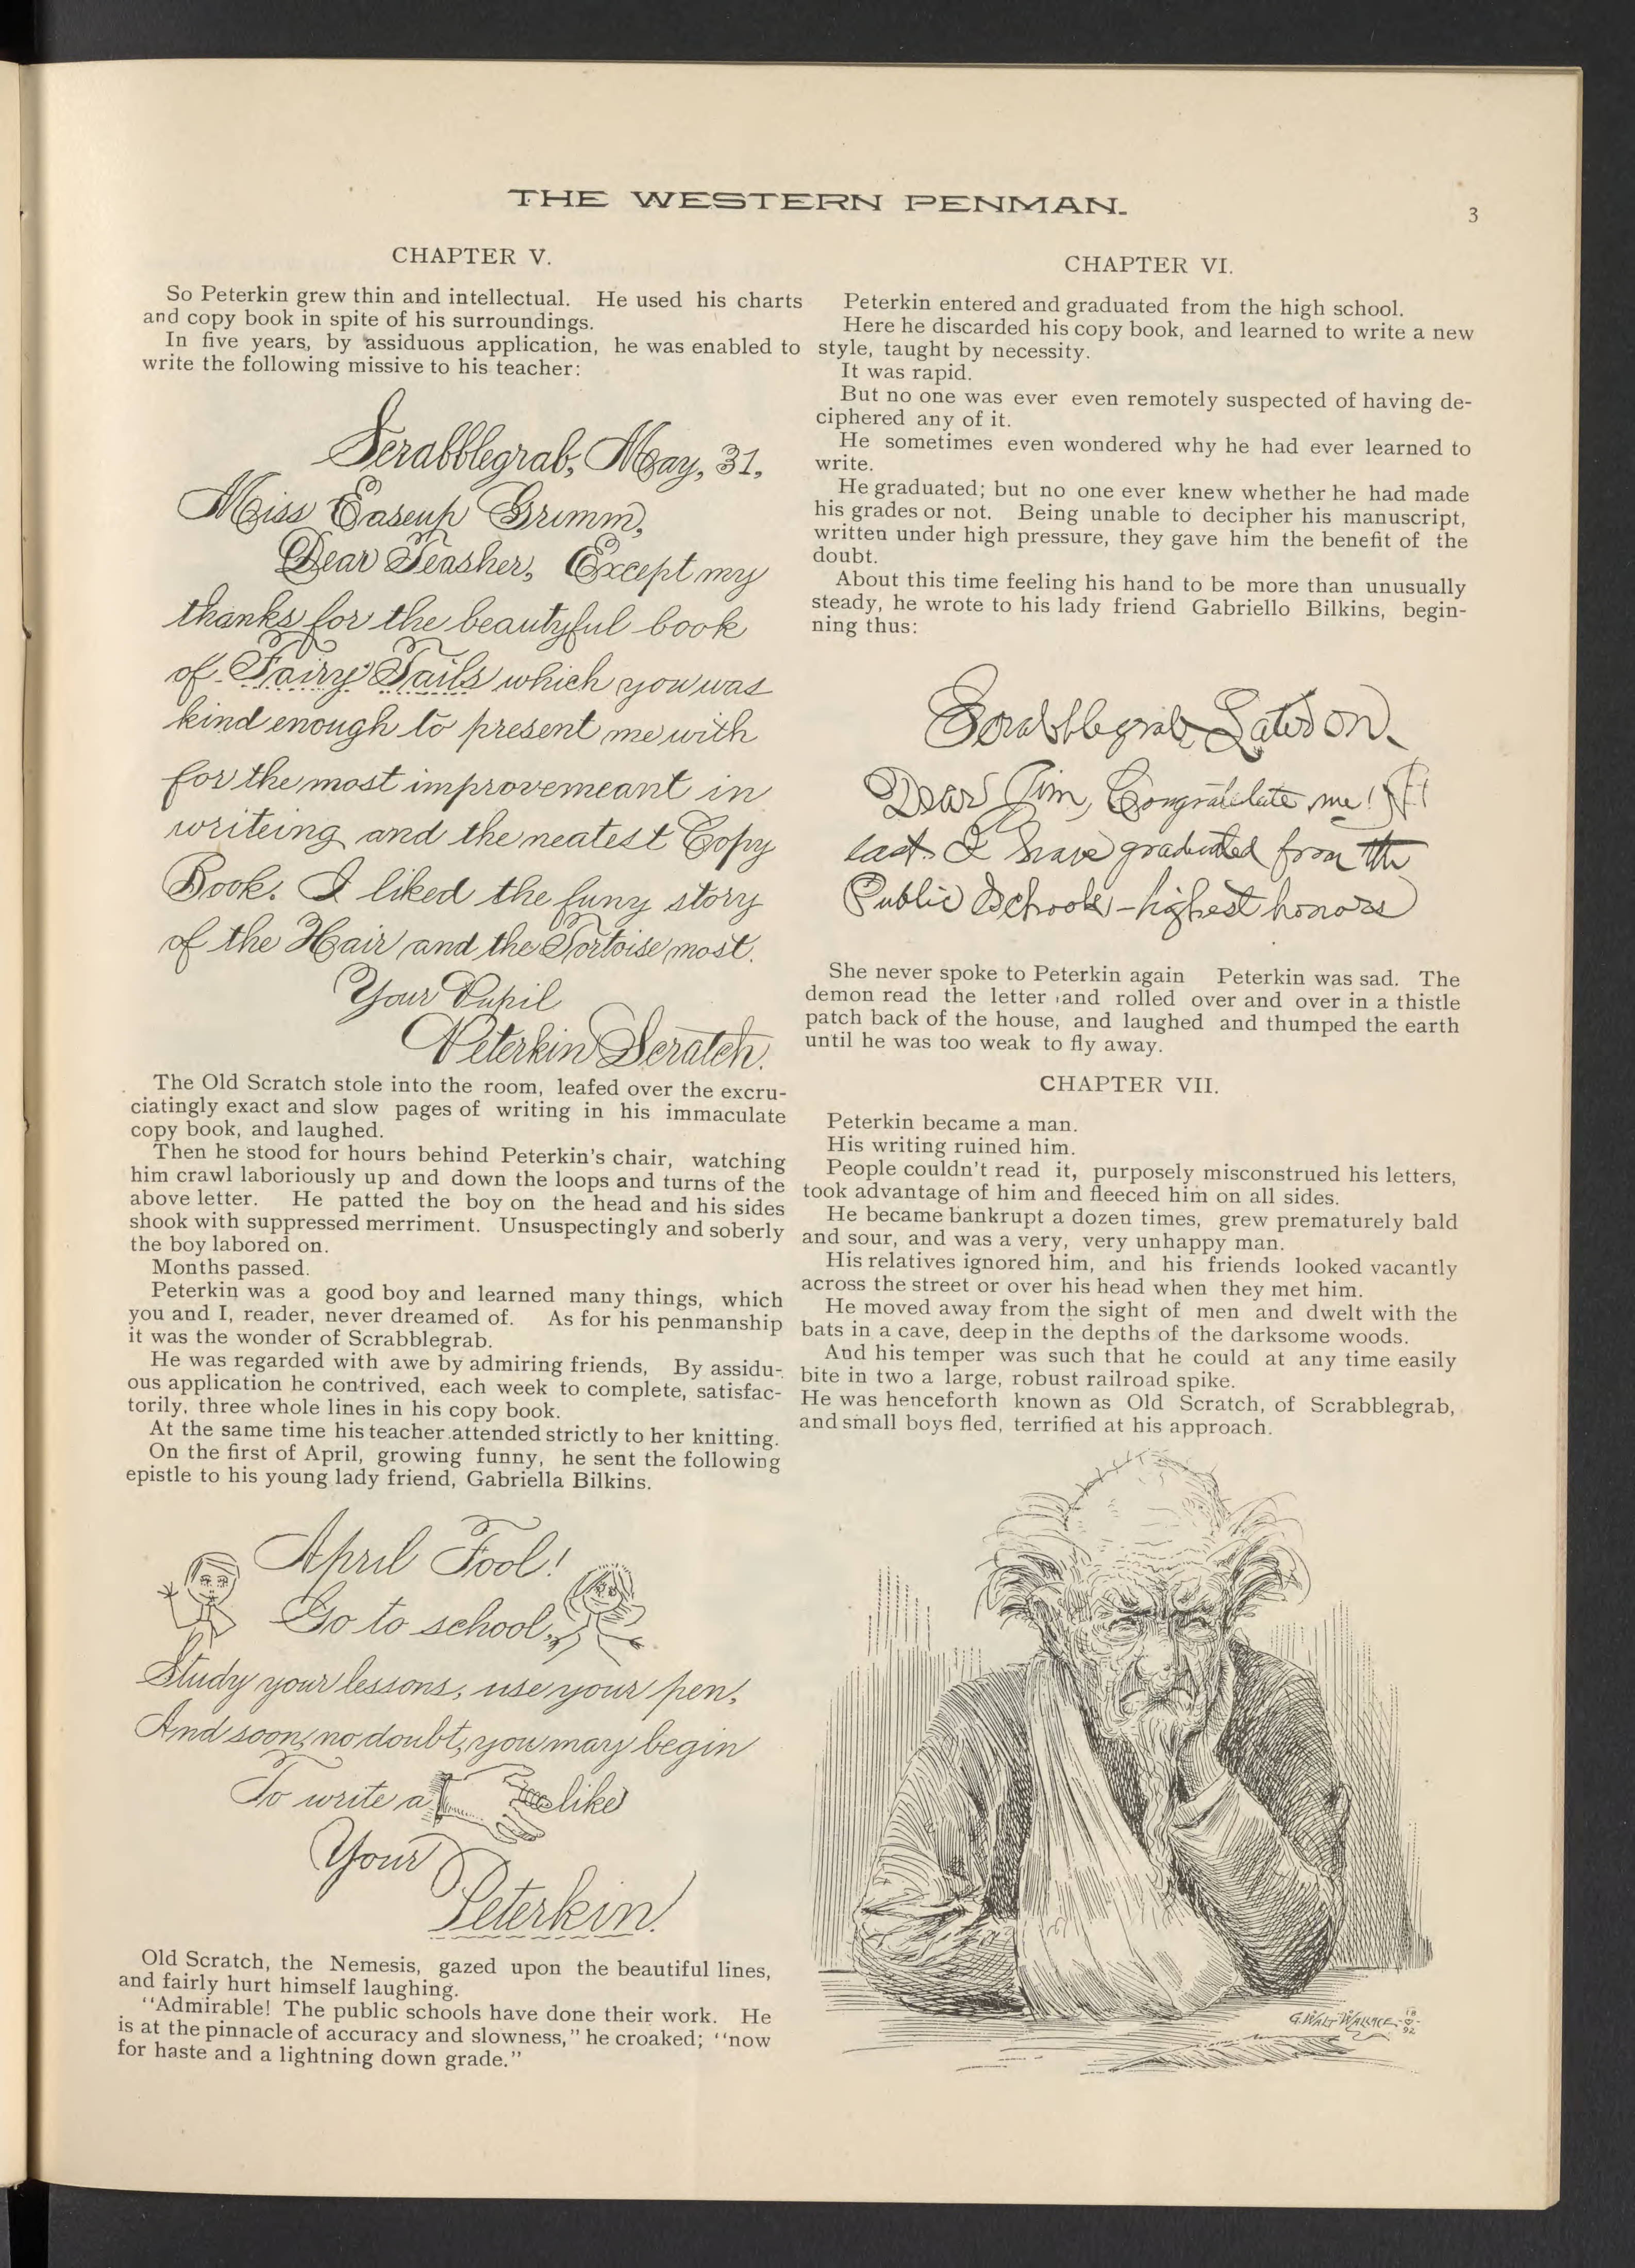 THE WESTERN PENMAN.
3
CHAPTER V.
So Peterkin grew thin and intellectual. He used his charts
and copy book in spite of his surroundings.
In five years, by assiduous application, he was enabled to
write the following missive to his teacher:
Scrabblegrab, May, 31,
Miss Easeup Grimm,
Dear Teasher, Except my
thanks for the beautyful book
of Fairy Tails which you was
kind enough to present me with
for the most improvemeant in
writeing and the neatest Copy
Book. I liked the funy story
of the Hair and the Tortoise most.
Your Pupil
Peterkin Scratch.
The Old Scratch stole into the room, leafed over the excru-
ciatingly exact and slow pages of writing in his immaculate
copy book, and laughed.
Then he stood for hours behind Peterkin's chair, watching
him crawl laboriously up and down the loops and turns of the
above letter. He patted the boy on the head and his sides
shook with suppressed merriment. Unsuspectingly and soberly
the boy labored on.
Months passed.
Peterkin was a good boy and learned many things, which
you and I, reader, never dreamed of. As for his penmanship
it was the wonder of Scrabblegrab.
He was regarded with awe by admiring friends, By assidu-
ous application he contrived, each week to complete, satisfac-
torily, three whole lines in his copy book.
At the same time his teacher attended strictly to her knitting.
On the first of April, growing funny, he sent the following
epistle to his young lady friend, Gabriella Bilkins.
April Fool!
Go to school,
Study your lessons, use your pen,
And soon, no doubt, you may begin
To write a like
Your
Peterkin.
Old Scratch, the Nemesis, gazed upon the beautiful lines,
and fairly hurt himself laughing.
"Admirable! The public schools have done their work. He
is at the pinnacle of accuracy and slowness," he croaked; "now
for haste and a lightning down grade."
CHAPTER VI.
Peterkin entered and graduated from the high school.
Here he discarded his copy book, and learned to write a new
style, taught by necessity.
It was rapid.
But no one was ever even remotely suspected of having de-
ciphered any of it.
He sometimes even wondered why he had ever learned to
write.
He graduated; but no one ever knew whether he had made
his grades or not. Being unable to decipher his manuscript,
written under high pressure, they gave him the benefit of the
doubt.
About this time feeling his hand to be more than unusually
steady, he wrote to his lady friend Gabriello Bilkins, begin-
ning thus:
Scrabblegrab, Later on.
Dear Jim, Congratulate me! At
last I have graduated from the
Public Schools - highest honors
She never spoke to Peterkin again Peterkin was sad. The
demon read the letter and rolled over and over in a thistle
patch back of the house, and laughed and thumped the earth
until he was too weak to fly away.
CHAPTER VII.
Peterkin became a man.
His writing ruined him.
People couldn't read it, purposely misconstrued his letters,
took advantage of him and fleeced him on all sides.
He became bankrupt a dozen times, grew prematurely bald
and sour, and was a very, very unhappy man.
His relatives ignored him, and his friends looked vacantly
across the street or over his head when they met him.
He moved away from the sight of men and dwelt with the
bats in a cave, deep in the depths of the darksome woods.
And his temper was such that he could at any time easily
bite in two a large, robust railroad spike.
He was henceforth known as Old Scratch, of Scrabblegrab,
and small boys fled, terrified at his approach.
G. WALT WALLACE. 18
92